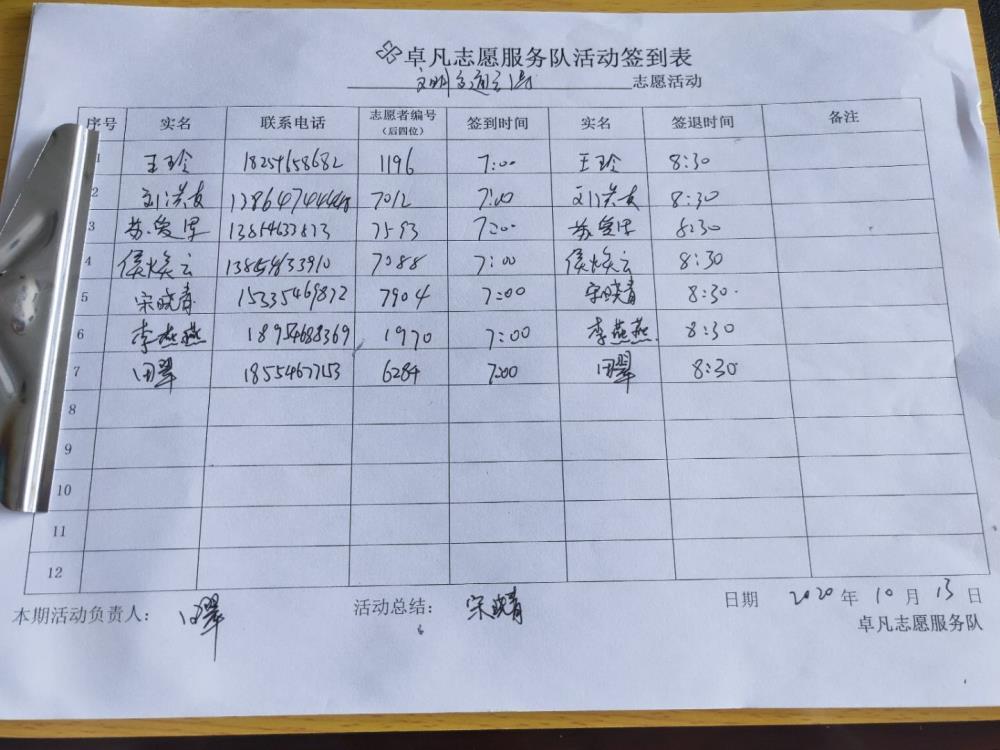 卓凡志愿服务队活动签到表
文明交通引导 志愿活动
序号 实名 联系电话 志愿者编号（后四位） 签到时间 实名 签退时间 备注
1 王玲 18254658682 1196 7:00 王玲 8:30
2 刘洪友 7012 7:00 刘洪友 8:30
3 苏爱军 7593 7:00 苏爱军 8:30
4 侯焕云 7088 7:00 侯焕云 8:30
5 宋晓青 15335469872 7904 7:00 宋晓青 8:30
6 李燕燕 18954688369 1970 7:00 李燕燕 8:30
7 田翠 18554677153 6284 7:00 田翠 8:30
8
9
10
11
12
本期活动负责人： 田翠 活动总结： 宋晓青 日期 2020 年 10 月 13 日
卓凡志愿服务队